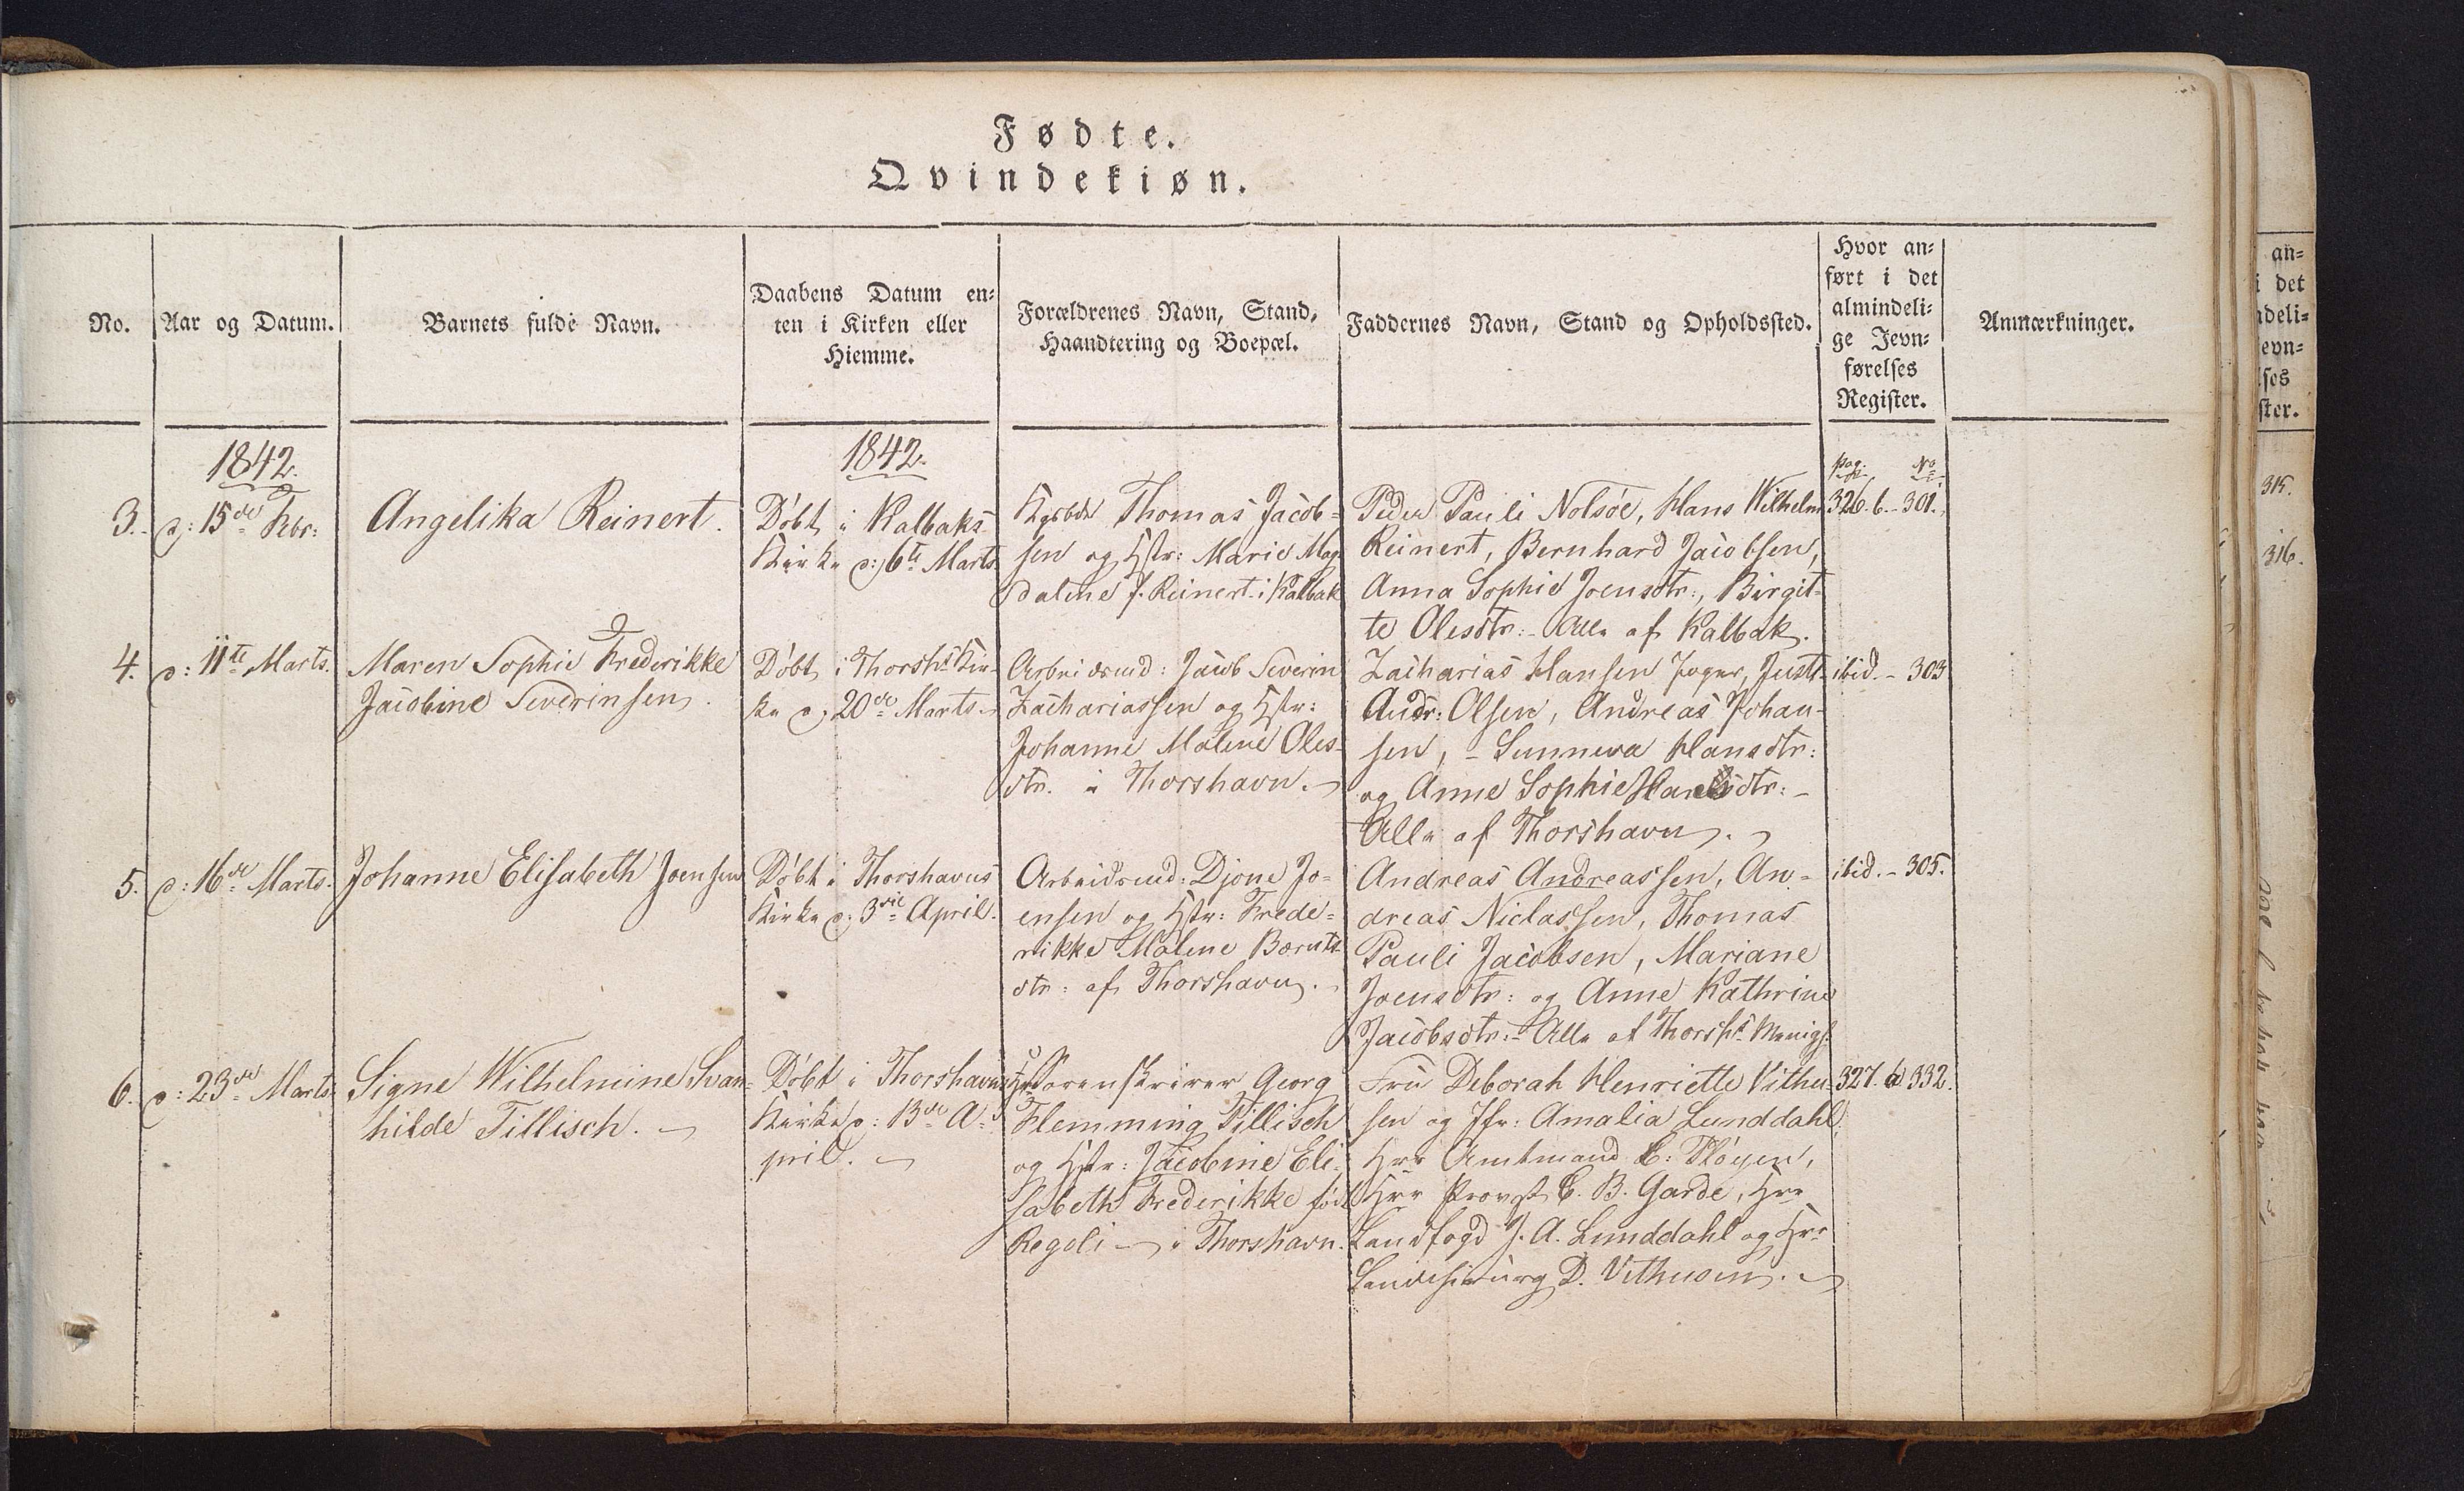 Fødte.
Qvindekiøn.
No.
Aar og Datum.
Barnets fulde Navn.
Daabens Datum en-
ten i Kirken eller
Hiemme.
Forældrenes Navn, Stand,
Haandtering og Boepæl.
Faddernes Navn, Stand og Opholdssted.
Hvor an-
ført i det
almindeli-
ge Jevn-
førelses
Register.
Anmærkninger.
1842.
1842.
pag. No
3.
d: 15de Febr:
Angelika Reinert.
Döbt i Kalbaks
Kirke d: 6te Marts
Thomas Jacob-
sen og Hstr: Marie Mag-
dalene f. Reinert i Kalbak
Peder Pauli Nolsöe, Hans Wilhelm
Reinert, Bernhard Jacobsen,
Anna Sophie Joensdtr:, Birgit-
te Olesdtr: - Alle af Kalbak.
326. b. - 301.
4.
d: 11te Marts.
Maren Sophie Frederikke
Jacobine Severinsen.
Döbt i Thorshs Kir-
ke d: 20de Marts.
Arbeidsmd: Jacob Severin
Zachariassen og Hstr:
Johanne Malene Oles-
dtr. i Thorshavn.
Zacharias Hansen Joger, Just
Andr: Olsen, Andreas Johan-
sen, - Sunneva Hansdtr:
og Anne Sophie Hansdtr: -
Alle af Thorshavn.
ibid. - 303
5.
d: 16de Marts.
Johanne Elisabeth Joensen
Döbt i Thorshavns
Kirke d: 3die April.
Arbeidsmd: Djone Jo-
ensen og Hstr: Frede-
rikke Malene Bærnts
dtr: af Thorshavn.
Andreas Andreassen, An-
dreas Niclassen, Thomas
Pauli Jacobsen, Mariane
Joensdtr: og Anne Kathrine
Jacobsdtr: - Alle af Thorshs Menigh:
ibid. - 305.
6.
d: 23de Marts
Signe Wilhelmine Svan-
hilde Tillisch.
Döbt i Thorshavns
Kirke d: 13de A-
pril.
Hr Sorenskriver Georg
Flemming Tillisch
og Hstr: Jacobine Eli-
sabeth Frederikke född
Regoli - i Thorshavn.
Fru Deborah Henriette Vithu-
sen og Jfr: Amalia Lunddahl,
Hrr Amtmand C: Plöyen,
Hrr Provst C. B. Garde, Hrr
Landfogd J. A. Lunddahl og Hrr
Landchirurg D. Vithusen.
327. a 332.
an-
i det
ndeli-
evn-
lses
ster.
315.
316.